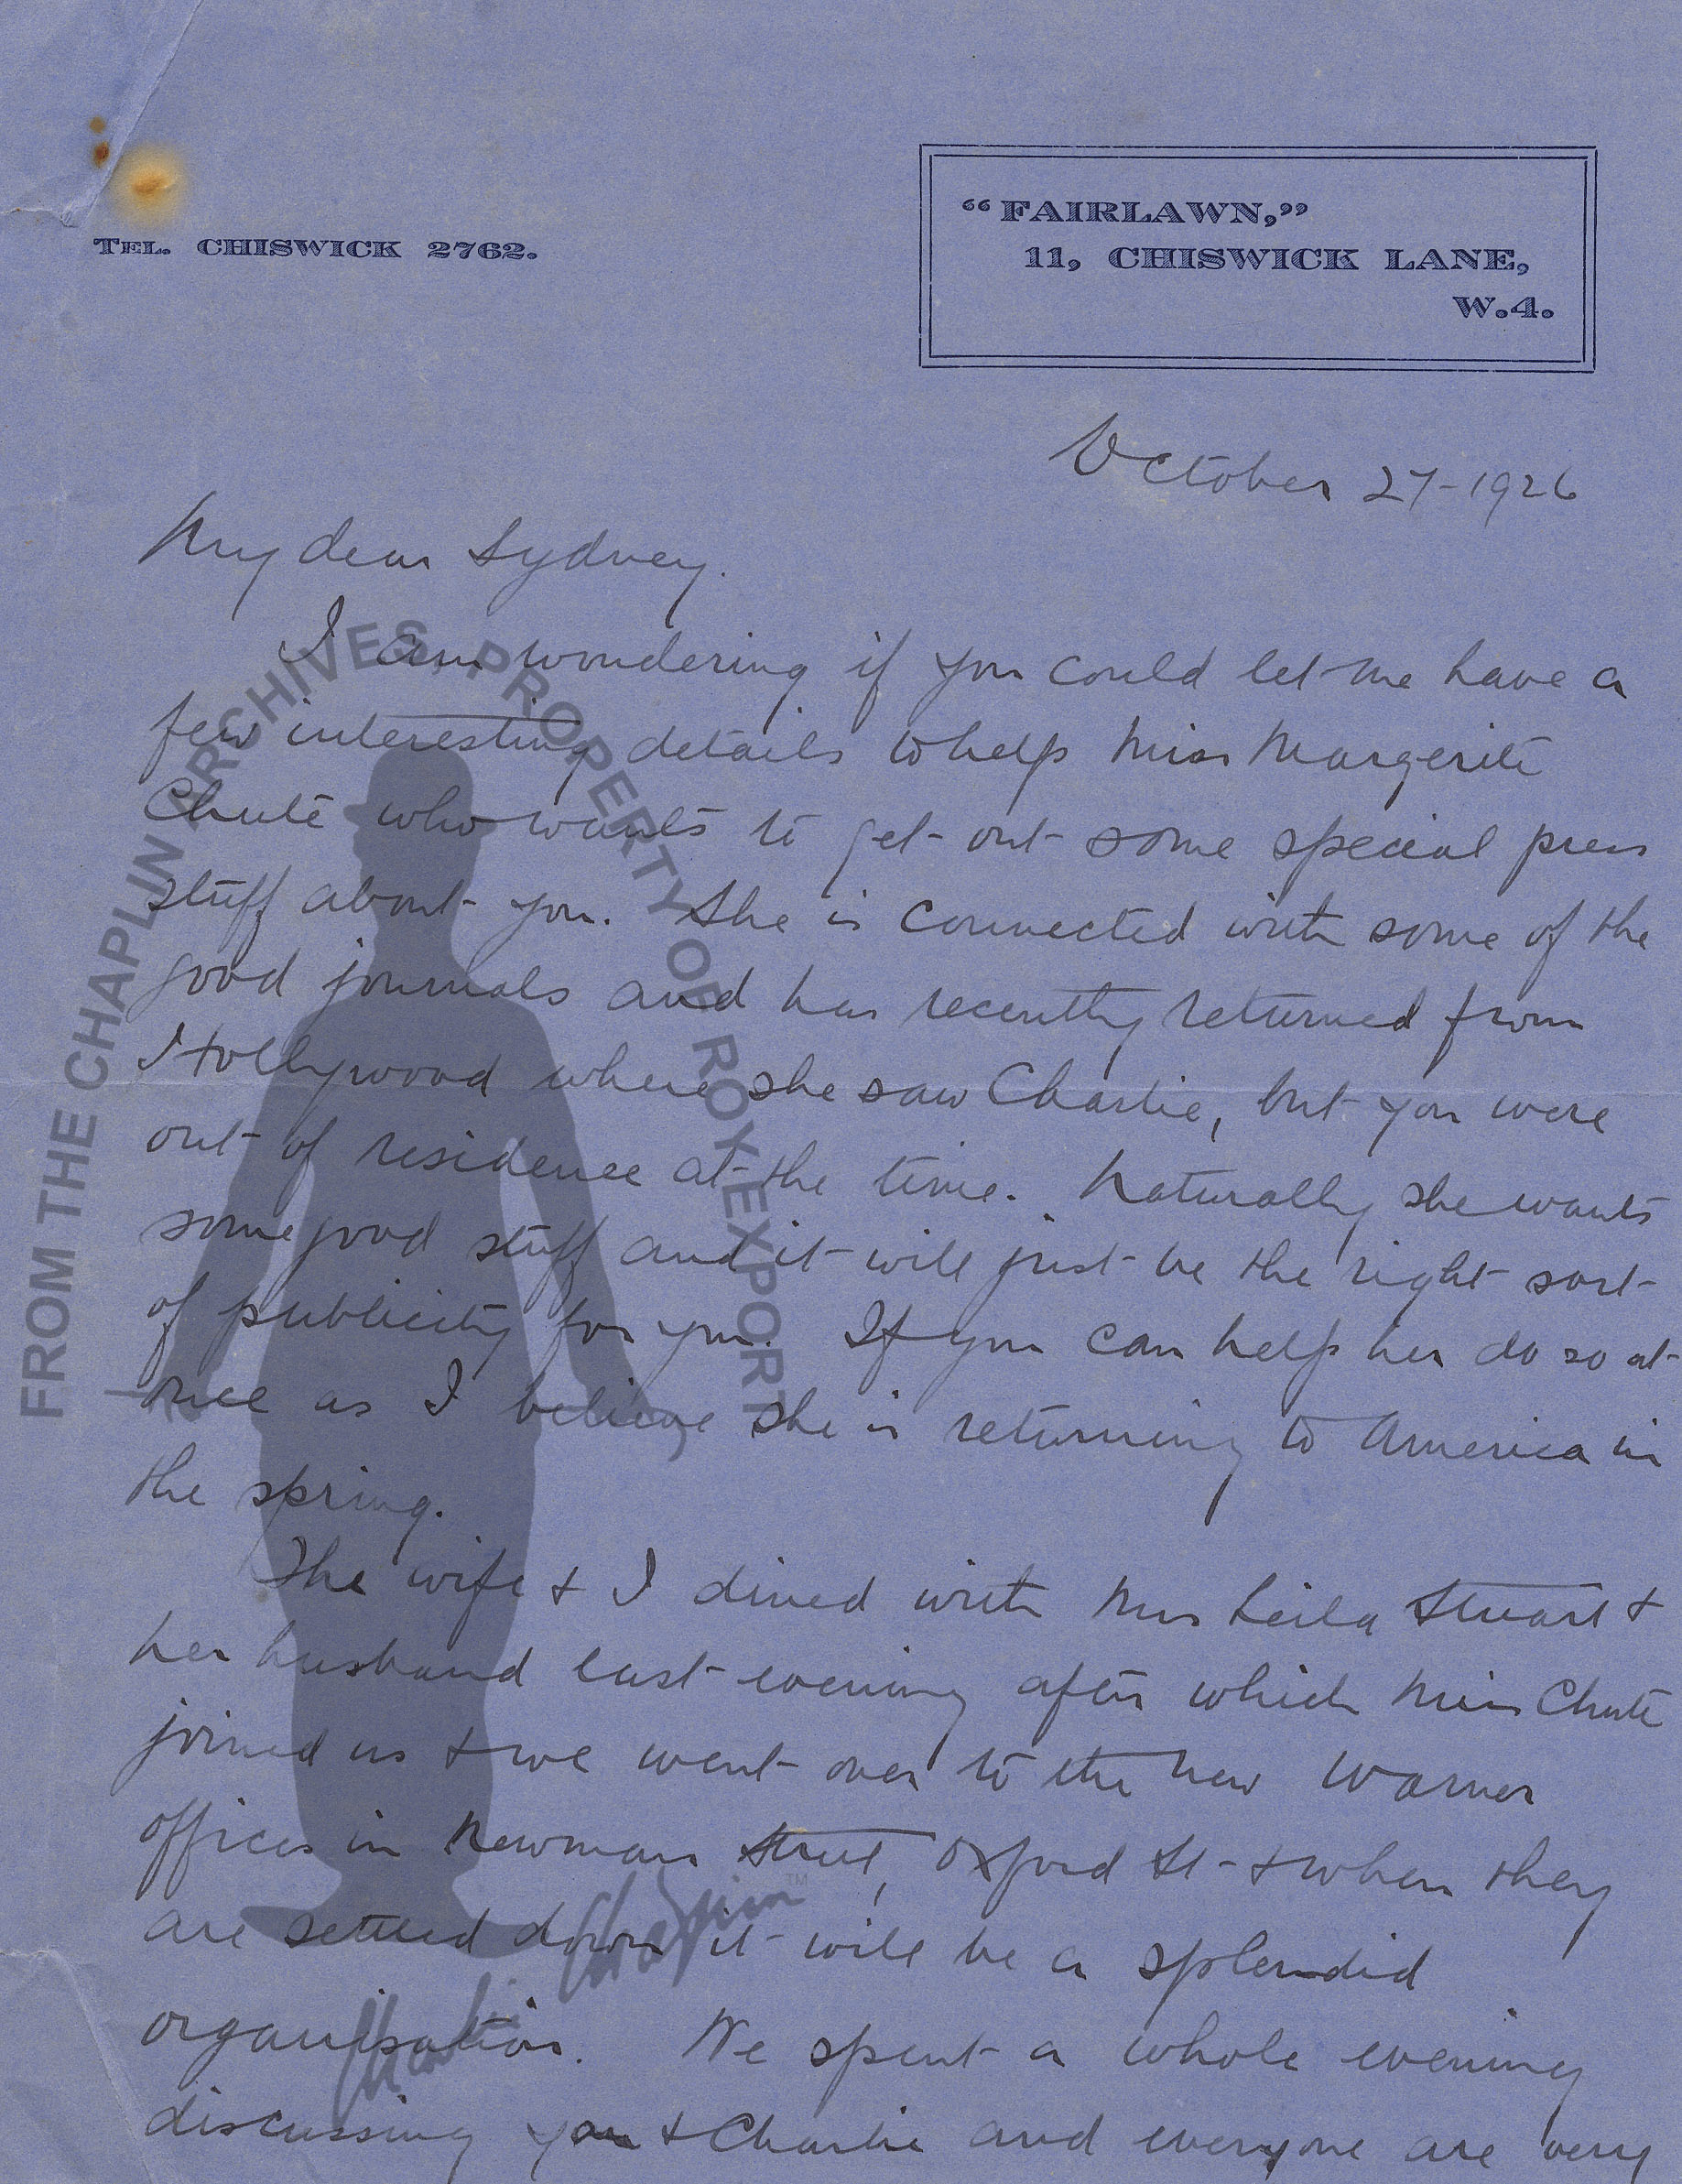 TEL. CHISWICK 2762.
"FAIRLAWN,"
11, CHISWICK LANE,
W.4.
October 27-1926
My dear Sydney.
I am wondering if you could let me have a
few interesting details to help Miss Margerite
Chute who wants to get out some special press
stuff about you. She is connected with some of the
good journals and has recently returned from
Hollywood where she saw Charlie, but you were
out of residence at the time. Naturally she wants
some good stuff and it will just be the right sort
of publicity for you. If you can help her do so at
once as I believe she is returning to America in
the spring.
The wife & I dined with Mrs Leila Stuart &
her husband last evening after which Miss Chute
joined us & we went over to the new Warner
offices in Newman Street, Oxford St - & when they
are settled down it will be a splendid
organisation. We spent a whole evening
discussing you & Charlie and everyone are very
FROM THE CHAPLIN ARCHIVES, PROPERTY OF ROY EXPORT
Charlie Chaplin™